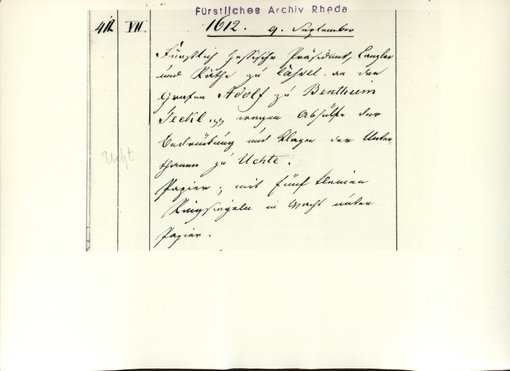 Fürstliches Archiv Rheda
VII.
1612. 9. September
Fürstlich Hessische Präsident, Canzler
und Räthe zu Cassel an den
Grafen Adolf zu Bentheim
Teckl. wegen Abhülfe der
Bedrückung und Klagen der Unter
thanen zu Uchte.
Papier, mit fünf kleinen
Ringsiegeln in Wachs unter
Papier.
Ucht